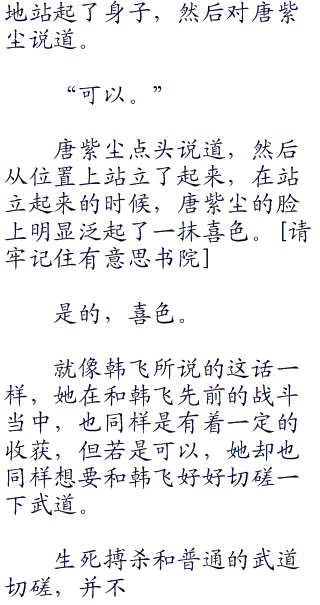 地站起了身子，然后对唐紫
尘说道。
“可以。”
唐紫尘点头说道，然后
从位置上站立了起来，在站
立起来的时候，唐紫尘的脸
上明显泛起了一抹喜色。[请
牢记住有意思书院]
是的，喜色。
就像韩飞所说的这话一
样，她在和韩飞先前的战斗
当中，也同样是有着一定的
收获，但若是可以，她却也
同样想要和韩飞好好切磋一
下武道。
生死搏杀和普通的武道
切磋，并不